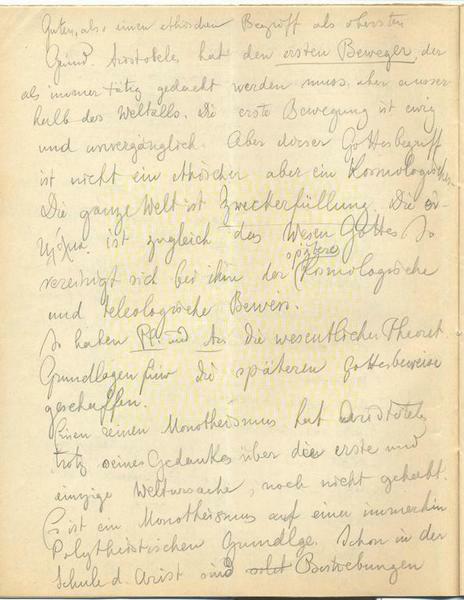 Guten, also einen ethischen Begriff als obersten
Grund. Aristoteles hat den ersten Beweger, der
als immer tätig gedacht werden muss aber ausser
halb des Weltalls. Die erste Bewegung ist ewig
und unvergänglich. Aber dieser Gottesbegriff
ist nicht ein ethischer aber ein Kosmologischer.
Die ganze Welt ist Zweckerfüllung. Die
ist zugleich das Wesen Gottes So
vereinigt sich bei ihm der spätere Kosmologische
und teleologische Beweis.
So haben Pl. und Ar. die wesentlichen Theoret.
Grundlagen für die späteren Gottesbeweise
geschaffen.
Einen reinen Monotheismus hat Aristoteles
trotz seines Gedankes über die erste und
einzige Weltursache, noch nicht gehabt.
Es ist ein Monotheismus auf einer immerhin
Polytheistischen Grundlge. Schon in der
Schule d. Arist sind Bestrebungen